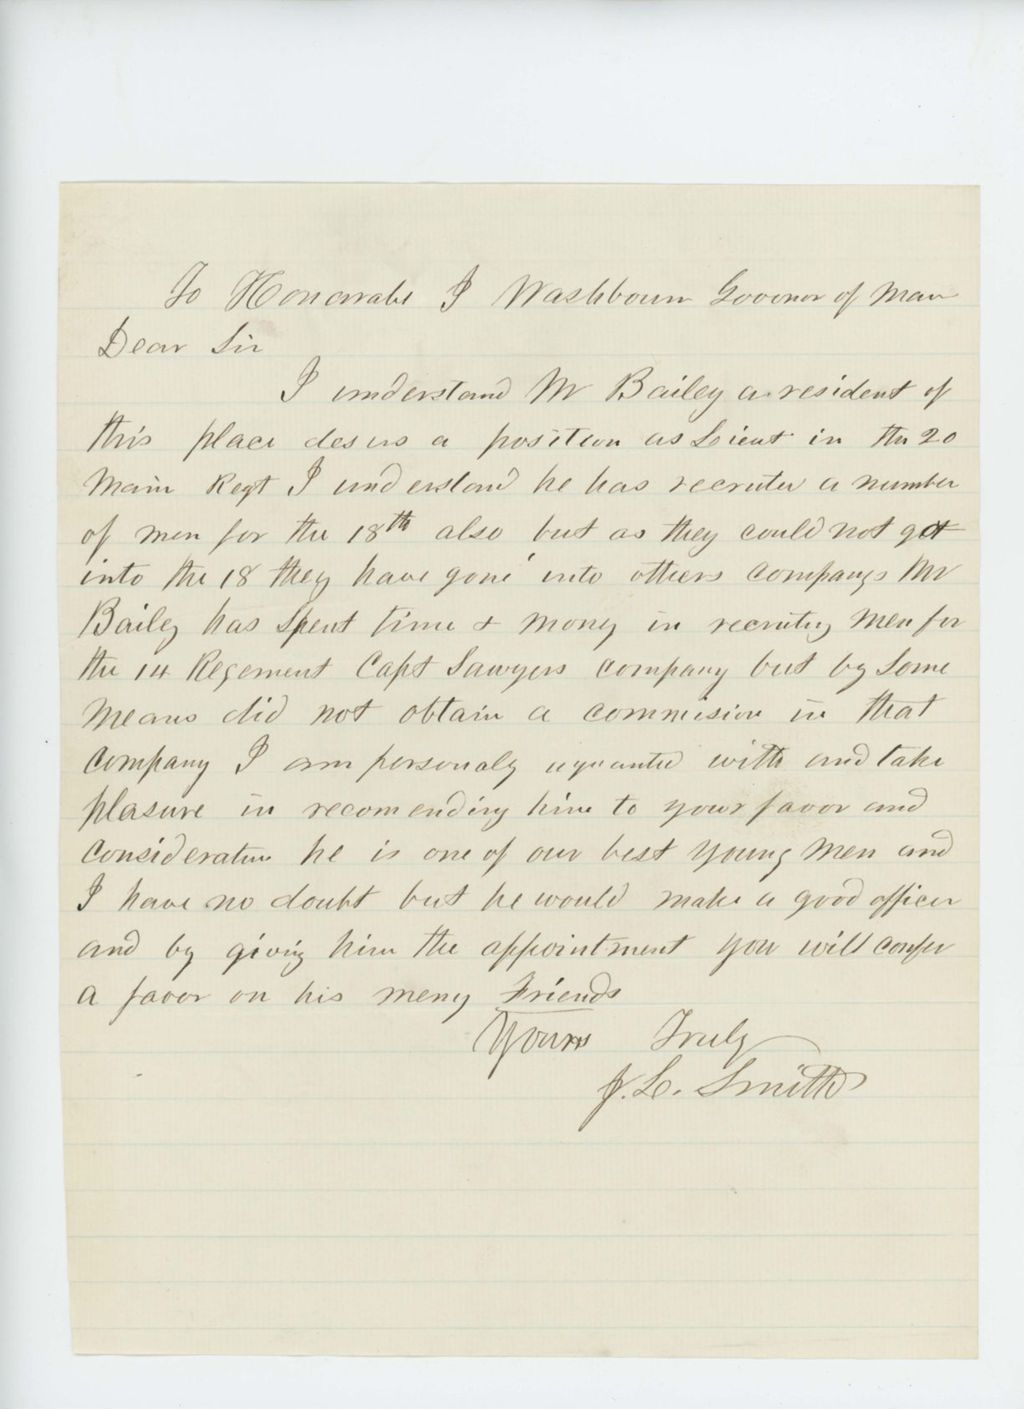 To Honorable I Washbourn Govonor of Main
Dear Sir
I understand Mr Bailey a resident of
this place desirs a position as Lieut in the 20
Main Regt I understand he has recruited a number
of men for the 18th also but as they could not get
into the 18 they have gone into others companys Mr
Bailey has spent time & mony in recruting men for
the 14 Regement Capt Sawyers company but by some
means did not obtain a commision in that
company I am personaly aquanted with and take
pleasure in recomending him to your favor and
consideration he is one of our best young men and
I have no doubt but he would make a good officer
and by giving him the appointment you will confer
a favor on his meny Friends
Yours Truly
J. L. Smith